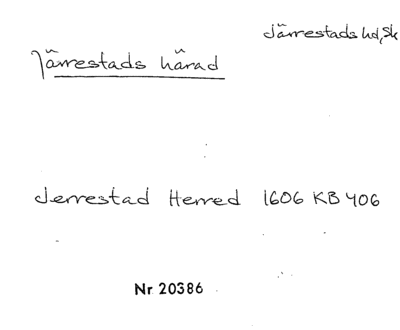 Järrestads hd, Sk
Järrestads härad
Jerrestad Herred 1606 KB 406
Nr 20386